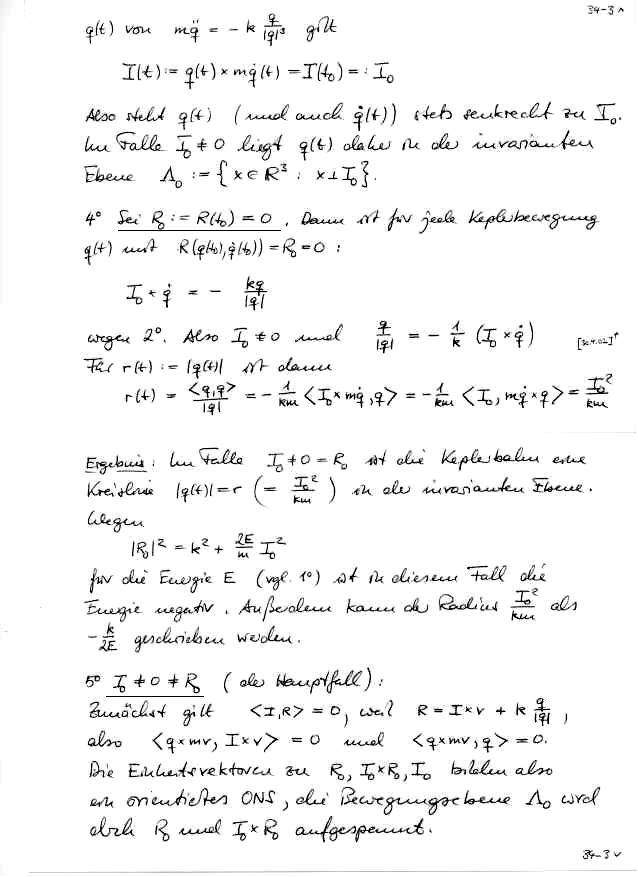 34-3 ^
q(t) von mq̈ = - k q/|q|³ gilt
I(t) := q(t) × mq̇(t) = I(t₀) =: I₀
Also steht q(t) (und auch q̇(t)) stets senkrecht zu I₀.
Im Falle I₀ ≠ 0 liegt q(t) daher in der invarianten
Ebene Λ₀ := {x ∈ R³ : x ⊥ I₀}.
4° Sei R₀ := R(t₀) = 0. Dann ist für jede Keplerbewegung
q(t) mit R(q(t₀), q̇(t₀)) = R₀ = 0 :
I₀ × q̇ = - kq/|q|
wegen 2°. Also I₀ ≠ 0 und q/|q| = - 1/k (I₀ × q̇)
Für r(t) := |q(t)| ist dann
r(t) = <q,q>/|q| = - 1/km <I₀ × mq̇, q> = - 1/km <I₀, mq̇ × q> = I₀²/km
Ergebnis: Im Falle I₀ ≠ 0 = R₀ ist die Keplerbahn eine
Kreislinie |q(t)| = r (= I₀²/km) in der invarianten Ebene.
Wegen
|R₀|² = k² + 2E/m I₀²
für die Energie E (vgl. 1°) ist in diesem Fall die
Energie negativ. Außerdem kann der Radius I₀²/km als
- k/2E geschrieben werden.
5° I₀ ≠ 0 ≠ R₀ (der Hauptfall) :
Zunächst gilt <I,R> = 0, weil R = I × v + k q/|q|,
also <q × mv, I × v> = 0 und <q × mv, q> = 0.
Die Einheitsvektoren zu R₀, I₀ × R₀, I₀ bilden also
ein orientiertes ONS, die Bewegungsebene Λ₀ wird
durch R₀ und I₀ × R₀ aufgespannt.
34-3 v